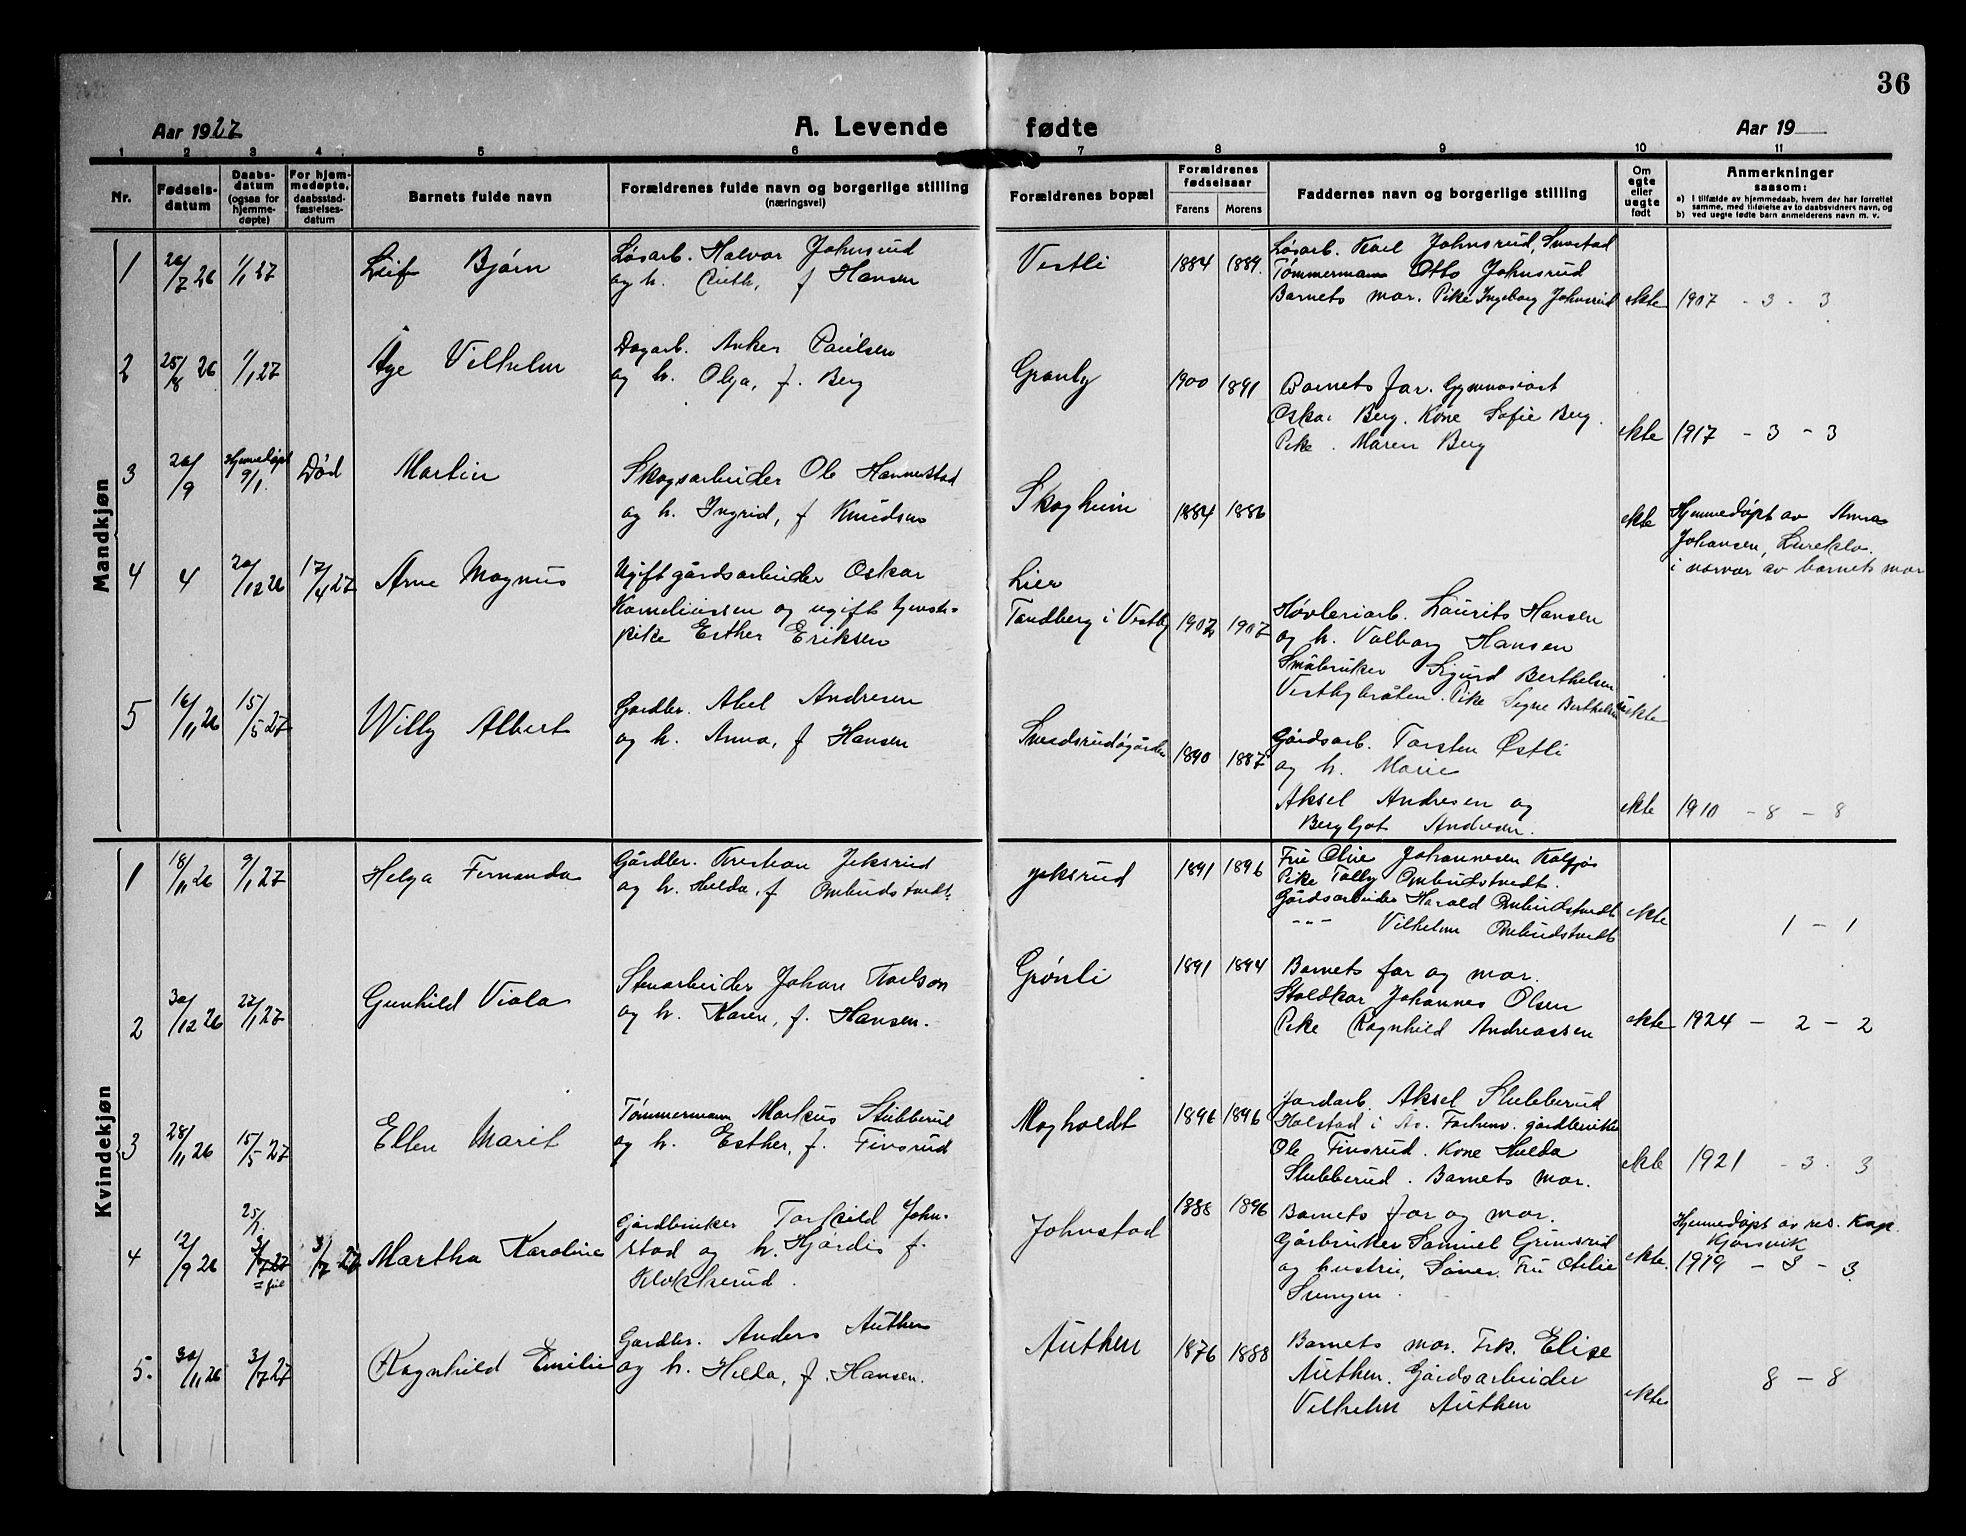 36
Aar 1927 A. Levende fødte Aar 19
1 2 3 4 5 6 7 8 9 10 11
Nr.
Fødsels-
datum
Daabs-
datum
(ogsaa for
hjemme-
døpte)
For hjem-
medøpte,
daabsstad-
fæstelses-
datum
Barnets fulde navn
Forældrenes fulde navn og borgerlige stilling
(næringsvei)
Forældrenes bopæl
Forældrenes
fødselsaar
Farens Morens
Faddernes navn og borgerlige stilling
Om
egte
eller
uegte
født
Anmerkninger
saasom:
a) I tilfælde av hjemmedaab, hvem der har forrettet
samme, med tilføielse av to daabsvidners navn, og
b) ved uegte fødte barn anmelderens navn m. v.
Mandkjøn
1 20/7 26 1/1 27 Leif Bjørn
Løsarb. Halvor Johnsrud
og h. Ruth, f Hansen
Vestli 1884 1889.
Løsarb. Karl Johnsrud,
Tømmermann Otto Johnsrud
Barnets mor. Pike Ingeborg Johnsrud
ekte 1907 - 3 - 3
2 25/8 26 1/1 27 Åge Vilhelm
Dagarb. Anker Paulsen
og h. Olga, f. Berg
Granby 1900 1891
Barnets far. Gymnasiast
Oskar Berg. Kone Sofie Berg.
Pike. Maren Berg
ekte 1917 - 3 - 3
3 20/9 Hjemmedøpt 9/1. Død Martin
Skogsarbeider Ole Hannestad
og h. Ingrid, f Knudsen
Skogheim 1884 1886
ekte Hjemmedøpt av Anna
Johansen,
i nærvær av barnets mor
4 4 20/12 26 17/4 27 Arne Magnus
Ugift gårdsarbeider Oskar
Korneliussen og ugift tjeneste-
pike Esther Eriksen
Lier
Tandberg i Vestby 1902 1907
Høvleriarb. Laurits Hansen
og h. Valborg Hansen
Småbruker Sigurd Berthelsen
Vestbybråten. Pike Signe Berthelsen
uekte
5 16/11 26 15/5 27 Willy Albert
Gårdbr. Abel Andresen
og h. Anna, f Hansen
1890 1887
Gårdsarb. Torsten Østli
og h. Marie
Aksel Andresen og
Bergljot Andresen.
ekte 1910 - 8 - 8
Kvindekjøn
1 18/11 26 9/1 27 Helga Fernanda
Gårdbr. Kristian Jeksrud
og h. Hulda, f Ombudstvedt
Jeksrud 1891 1896
Fru Olive Johannesen
Pike Tolly Ombudstvedt.
Gårdsarbeider Harald Ombudstvedt
-"- Vilhelm Ombudstvedt
ekte 1 - 1
2 30/12 26 27/1 27 Gunhild Viola
Stenarbeider Johan Karlson
og h. Karen, f. Hansen.
Grønli 1891 1894
Barnets far og mor.
Staldkar Johannes Olsen
Pike Ragnhild Andreassen
ekte 1924 - 2 - 2
3 28/11 26 15/5 27 Ellen Marit
Tømmermann Markus Stubberud
og h. Esther, f. Finsrud
Mogholdt 1896 1896
Jordarb. Aksel Stubberud
Holstad i Ås. Forhenv. gårdbruker
Ole Finsrud. Kone Hulda
Stubberud. Barnets mor.
ekte 1921 - 3 - 3
4 12/9 26 25/1 3/7 27 = feil 3/7 27 Martha Karoline
Gårdbruker Torkild John-
stad og h. Hjørdis f.
Klokkerud.
Johnstad 1888 1896
Barnets far og mor.
Gårbruker Samuel Grimsrud
og hustru, Fru Otilie
ekte.
Hjemmedøpt av res. Kap.
Kjørsvik
1919 - 3 - 3
5. 30/11 26 3/7 27 Ragnhild Emilie
Gårdbr. Anders Authen
og h. Hilda, f. Hansen.
Authen 1876 1888
Barnets mor. Frk. Elise
Authen. Gårdsarbeider
Vilhelm Authen
ekte 8 - 8